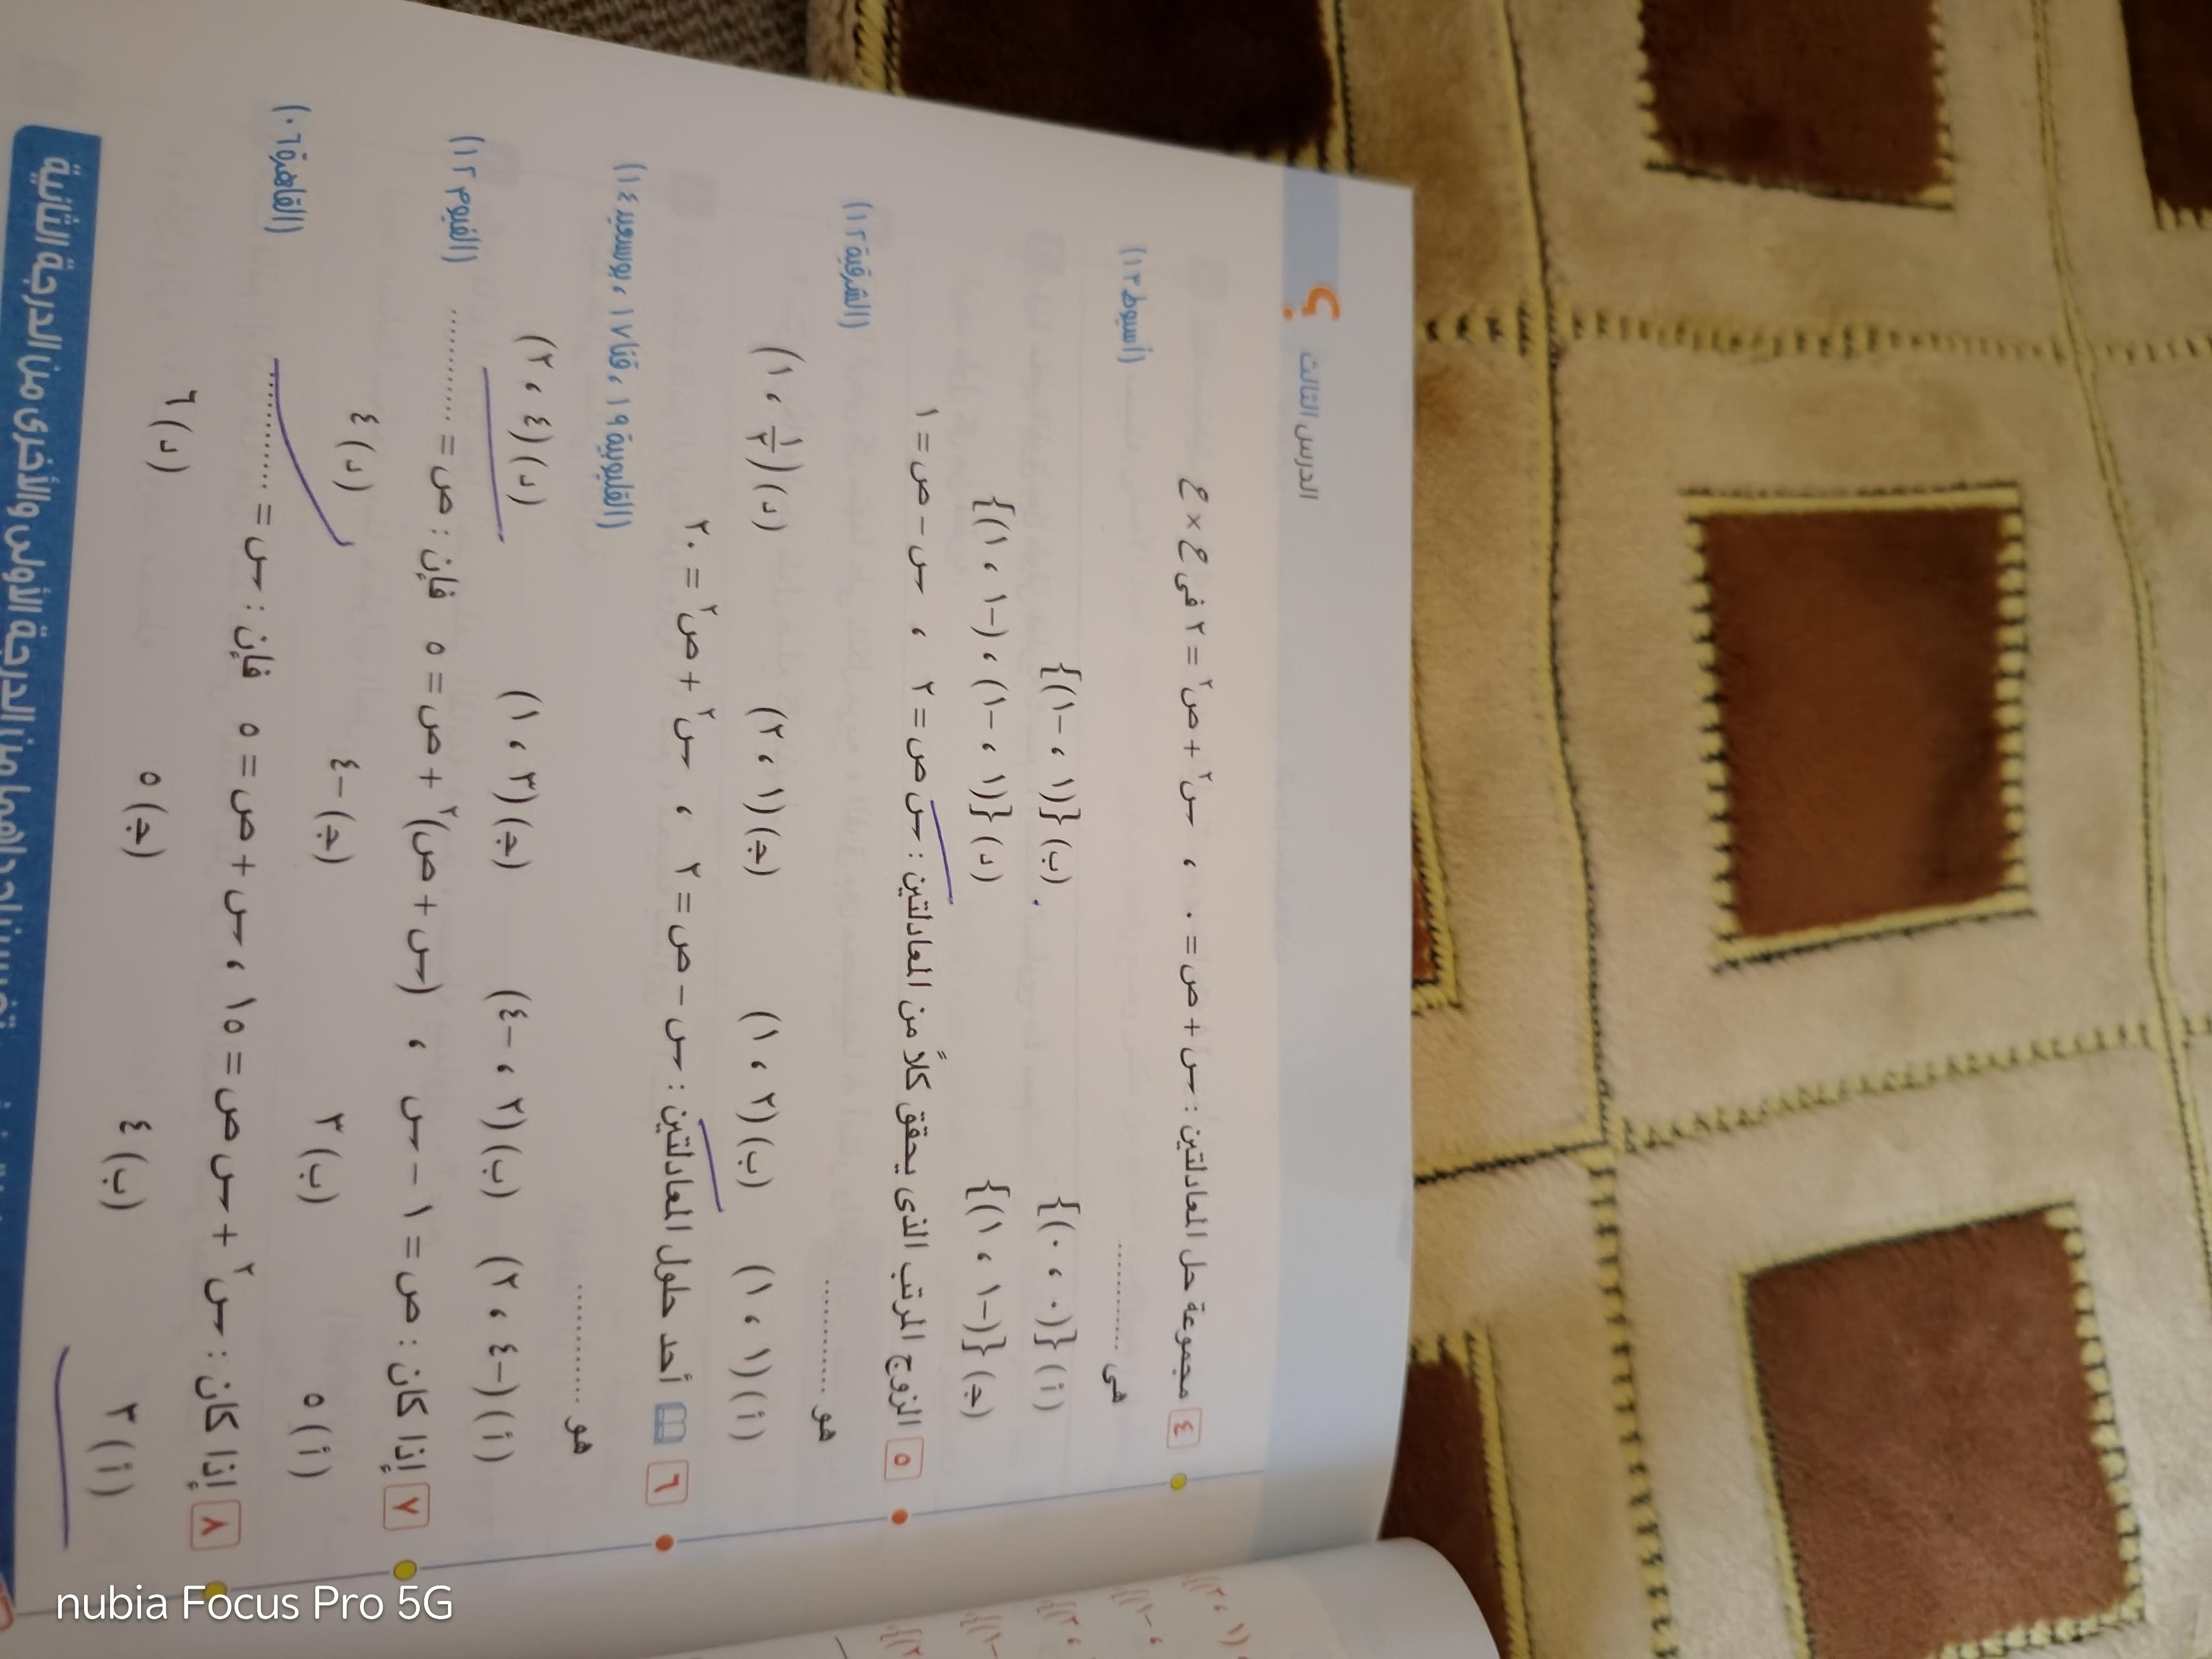 الدرس الثالث
٤ مجموعة حل المعادلتين : س + ص = ٠ ، س٢ + ص٢ = ٢ فى ع × ع
هى ............ (أسيوط ١٢)
(أ) {(٠ ، ٠)} (ب) {(١ ، -١)}
(ج) {(-١ ، ١)} (د) {(١ ، -١) ، (-١ ، ١)}
٥ الزوج المرتب الذى يحقق كلاً من المعادلتين : س ص = ٢ ، س - ص = ١
هو ............ (الشرقية ١٢)
(أ) (١ ، ١) (ب) (٢ ، ١) (ج) (١ ، ٢) (د) (١/٢ ، ١)
٦ أحد حلول المعادلتين : س - ص = ٢ ، س٢ + ص٢ = ٢٠
هو ............ (القليوبية ١٩ ، قنا ١٧ ، بورسعيد ١٤)
(أ) (-٤ ، ٢) (ب) (٢ ، -٤) (ج) (٣ ، ١) (د) (٤ ، ٢)
٧ إذا كان : ص = ١ - س ، (س + ص)٢ + ص = ٥ فإن : ص = ............ (الفيوم ١٢)
(أ) ٥ (ب) ٣ (ج) -٤ (د) ٤
٨ إذا كان : س٢ + س ص = ١٥ ، س + ص = ٥ فإن : س = ............ (القاهرة ٠٦)
(أ) ٣ (ب) ٤ (ج) ٥ (د) ٦
nubia Focus Pro 5G